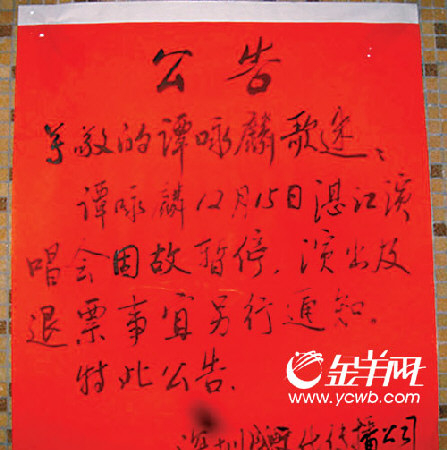 公告
尊敬的谭咏麟歌迷:
谭咏麟12月15日湛江演
唱会因故暂停，演出及
退票事宜另行通知。
特此公告。
金羊网
www.ycwb.com
深圳 传播公司